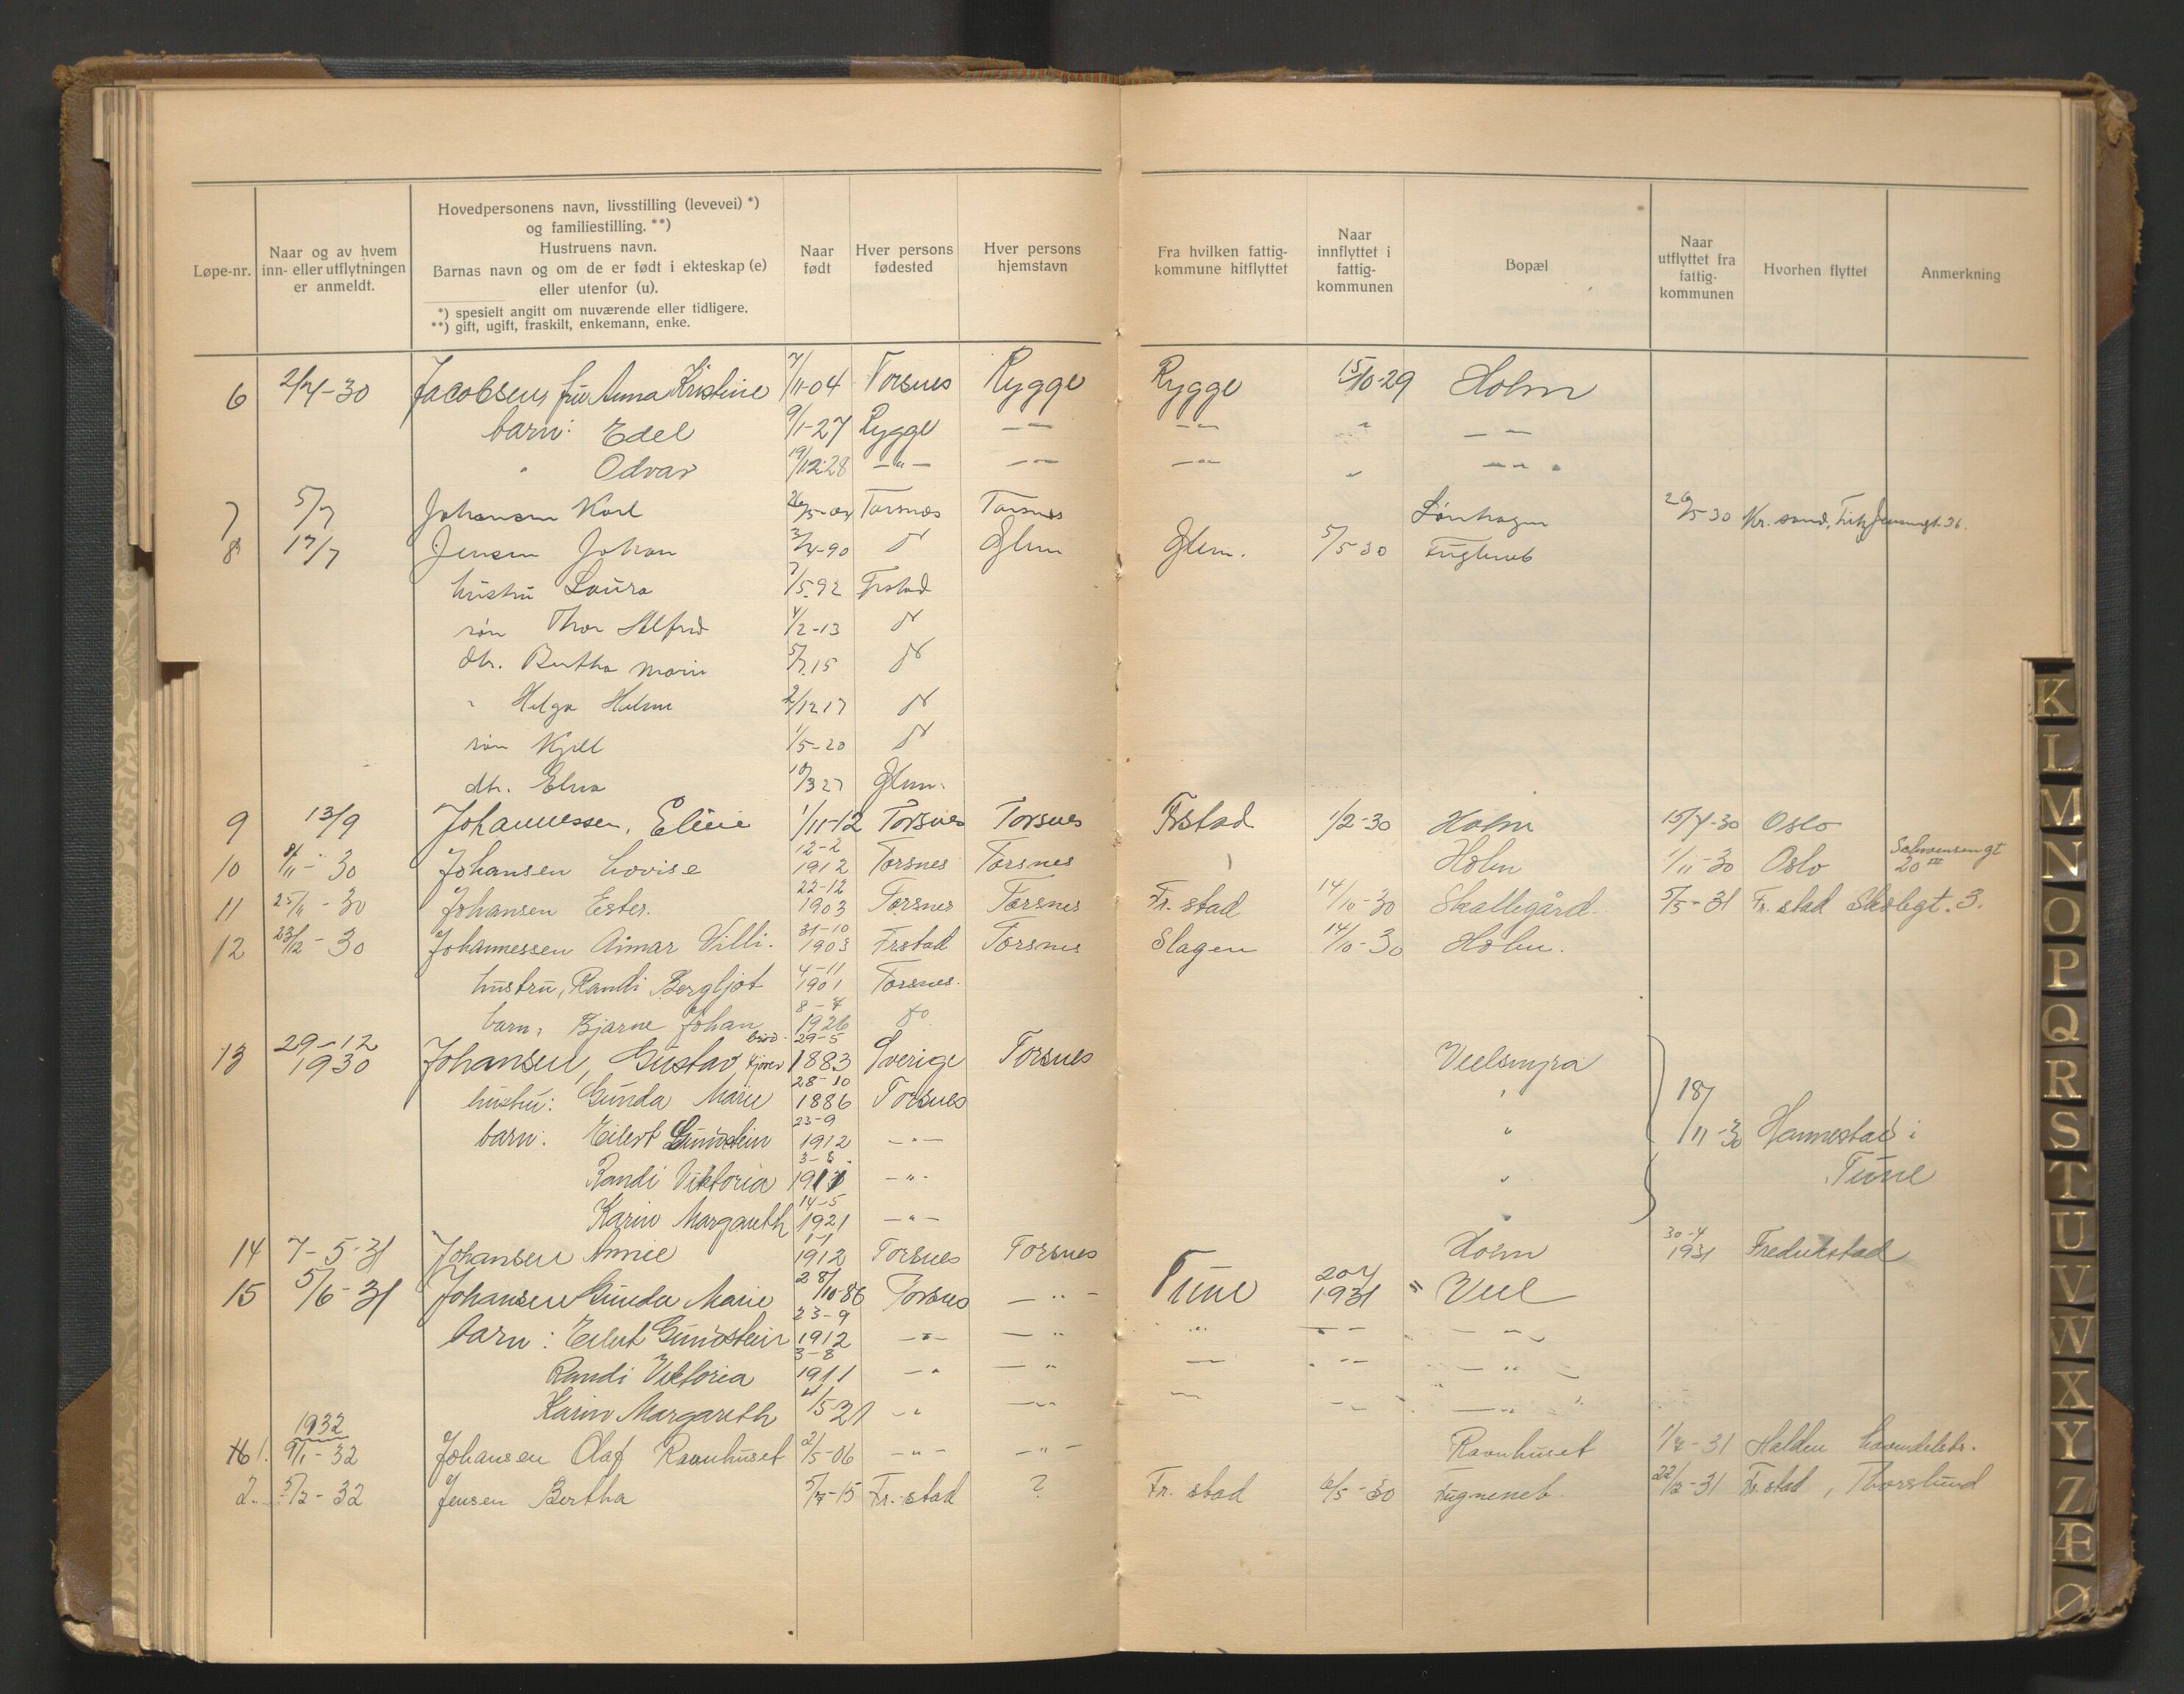 Løpe-nr.
Naar og av hvem
inn- eller utflytningen
er anmeldt.
Hovedpersonens navn, livsstilling (levevei) *)
og familiestilling. **)
Hustruens navn.
Barnas navn og om de er født i ekteskap (e)
eller utenfor (u).
*) spesielt angitt om nuværende eller tidligere.
**) gift, ugift, fraskilt, enkemann, enke.
Naar
født
Hver persons
fødested
Hver persons
hjemstavn
Fra hvilken fattig-
kommune hitflyttet
Naar
innflyttet i
fattig-
kommunen
Bopæl
Naar
utflyttet fra
fattig-
kommunen
Hvorhen flyttet
Anmerkning
6 2/4-30 Jacobsen, fru Anna Kristine 7/11-04 Torsnes Rygge Rygge 15/10-29 Holm
barn: Edel 9/1-27 Rygge — — — — " — —
" Odvar 19/12-28 —"— — — — — " —"—
7 5/7 Johansen Karl 26/5-04 Torsnes Torsnes Lønhagen 26/5 30 Kr. sand,
8 17/7 Jensen Johan 3/4-90 do Glem Glem. 5/5 30 Fugleneb
hustru Laura 7/5.92 Frstad
søn Thor Alfred 4/2-13 do
dtr. Bertha Marie 5/7.15 do
" Helga Helene 2/12 17 do
søn Kjell 1/5-20 do
dtr. Elna 10/3 27 Glem.
9 13/9 Johannessen, Eline 1/11-12 Torsnes Torsnes Frstad 1/2-30 Holm 15/4-30 Oslo
10 8/11-30 Johansen Lovise 12-2 1912 Torsnes Torsnes Holm 1/11-30 Oslo Schwensengt 20 III
11 25/11-30 Johansen Ester. 22-12 1903 Torsnes Torsnes Fr. stad 14/10-30 Skallegård 5/5-31 Fr. stad Skolegt. 3.
12 23/12-30 Johannessen Aimar Villi. 31-10 1903 Frstad Torsnes Slagen 14/10-30 Holm.
hustru, Randi Bergljot 4-11 1901 Torsnes.
barn, Bjarne Johan 8-4 1926 do
13 29-12 1930 Johansen, Gustav 29-5 1883 Sverige Torsnes Veelsmyra
hustru: Gunda Marie 28-10 1886 Torsnes " 18/11-30 Hannestad i
barn: Eilert Gundstein 23-9 1912 —"— " Tune
Randi Viktoria 3-8 1911 —"— "
Karin Margareth 14-5 1921 —"— "
14 7-5-31 Johansen Annie 1-1 1912 Torsnes Torsnes Holm 30-4 1931 Fredrikstad
15 5/6-31 Johansen Gunda Marie 28/10-86 Torsnes —"— Tune 20-4 1931 " Veel
barn: Eilert Gundstein 23-9 1912 —"— —"
Randi Viktoria 3-8 1911 —" —"
Karin Margareth 4/5 21 —" —"
1932
16 1. 9/1-32 Johansen Olaf Ravnhuset 2/5-06 —"— —"— Ravnhuset 1/7-31 Halden
2. 5/2-32 Jensen Bertha 5/7-15 Fr. stad ? Fr. stad 6/5-30 Fugleneb. 22/2-31 Fr. stad, Thorslund
K
L
M
N
O
P
Q
R
S
T
U
V
W
X
Y
Z
Æ
Ø